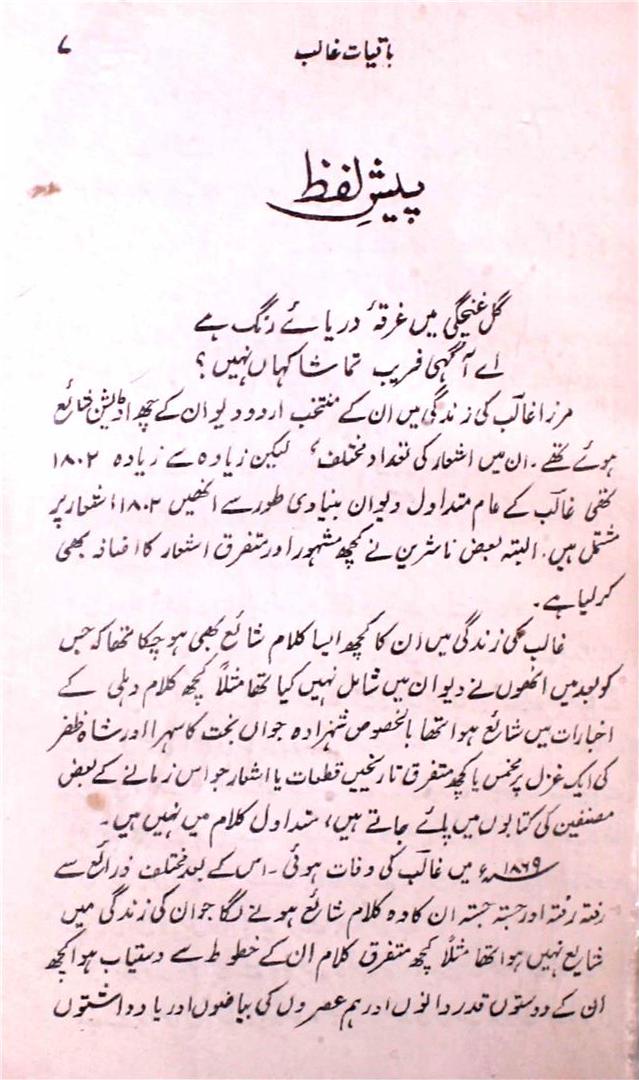 باقیات غالب ۷
پیشِ لفظ
گل غنچگی میں غرقۂ دریائے رنگ ہے
اے آگہی فریب تماشا کہاں نہیں؟
مرزا غالبؔ کی زندگی میں ان کے منتخب اردو دیوان کے چھ اڈیشن شائع
ہوئے تھے۔ ان میں اشعار کی تعداد مختلف، لیکن زیادہ سے زیادہ ۱۸۰۲
تھی غالبؔ کے عام متداول دیوان بنیادی طور سے انھیں ۱۸۰۲ اشعار پر
مشتمل ہیں۔ البتہ بعض ناشرین نے کچھ مشہور اور متفرق اشعار کا اضافہ بھی
کر لیا ہے۔
غالب کی زندگی میں ان کا کچھ ایسا کلام شائع بھی ہو چکا تھا کہ جس
کو بعد میں انھوں نے دیوان میں شامل نہیں کیا تھا مثلاً کچھ کلام دہلی کے
اخبارات میں شائع ہوا تھا بالخصوص شہزادہ جواں بخت کا سہرا اور شاہ ظفر
کی ایک غزل پر مخمس یا کچھ متفرق تاریخیں قطعات یا اشعار جو اس زمانے کے بعض
مصنفین کی کتابوں میں پائے جاتے ہیں، متداول کلام میں نہیں ہیں۔
۱۸۶۹ء میں غالبؔ کی وفات ہوئی۔ اس کے بعد مختلف ذرائع سے
رفتہ رفتہ اور جستہ جستہ ان کا وہ کلام شائع ہونے لگا جو ان کی زندگی میں
شایع نہیں ہوا تھا مثلاً کچھ متفرق کلام ان کے خطوط سے دستیاب ہوا کچھ
ان کے دوستوں قدردانوں اور ہم عصروں کی بیاضوں اور یادداشتوں